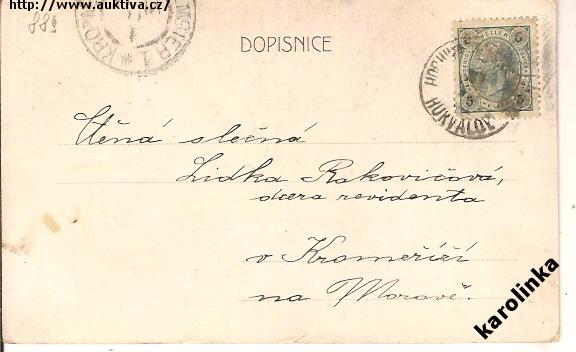 http://www.auktiva.cz/
889
DOPISNICE
HUKVALDY
5 HELLER 5
Ctěná slečna
Lidka Rakovičová,
dcera revidenta
v Kroměříži
na Moravě.
karolinka